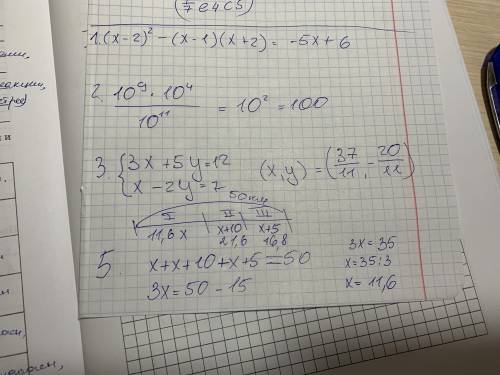 1.(x-2)² - (x-1)(x+2) = -5x+6
2. 10⁹ · 10⁴ / 10¹¹ = 10² = 100
3. { 3x+5y=12
x-2y=7
(x,y) = (37/11, -20/11)
50км
I II III
11,6 x x+10 x+5
21,6 16,8
5 x+x+10+x+5=50
3x=50-15
3x=35
x=35:3
x=11,6